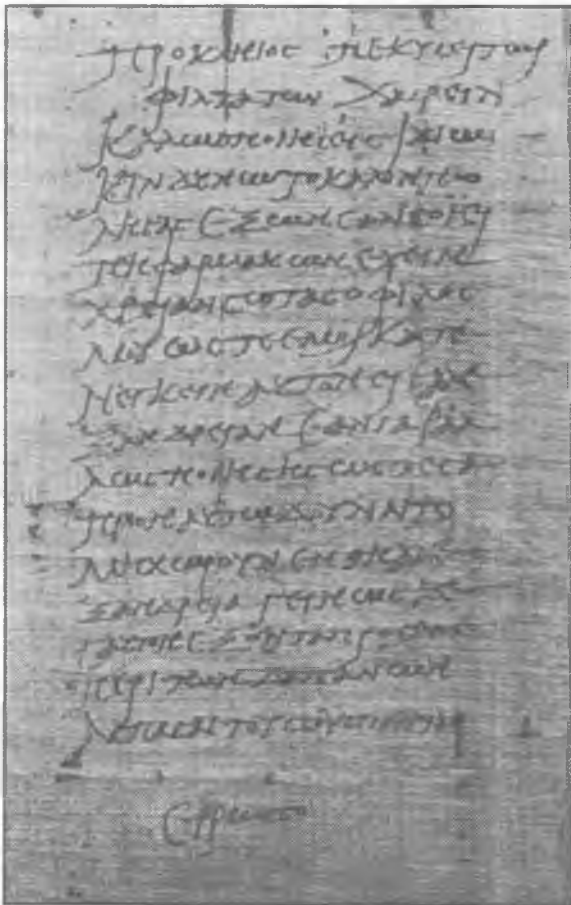 προκληιος πεκυσει τωι
φιλτατωι χαιρειν
καλως ποιησεις ιδιωι
κινδυνωι το καλον πω
λησας εξ ων εαν σοι ει
πη φαρμακων εχειν
χρειαν σωτας ο φιλος
μου ωστε εμοι κατε
νεγκειν αυτον εις αλε
ξανδρειαν εαν γαρ αλ
λως ποιησης ωστε σα
προν αυτωι δουναι το
μη χωρουν εν τηι αλε
ξανδρειαι γεινωσκε σαυ
τον εξοντα προς εμε
περι των δαπανων
ασπασαι τους σους παντας
ερρωσο